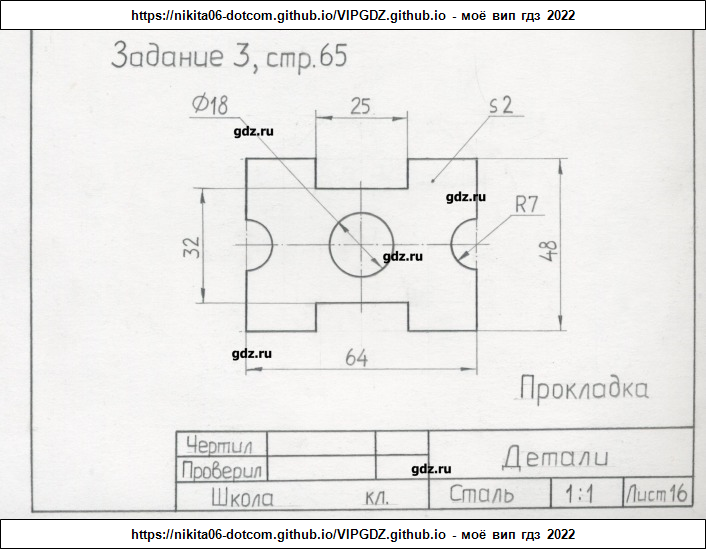 https://nikita06-dotcom.github.io/VIPGDZ.github.io - моё вип гдз 2022
Задание 3, стр.65
Ф18
25
s2
gdz.ru
gdz.ru
R7
32
gdz.ru
48
gdz.ru
64
Прокладка
Чертил
Проверил
gdz.ru
Детали
Школа кл.
Сталь
1:1
Лист 16
https://nikita06-dotcom.github.io/VIPGDZ.github.io - моё вип гдз 2022